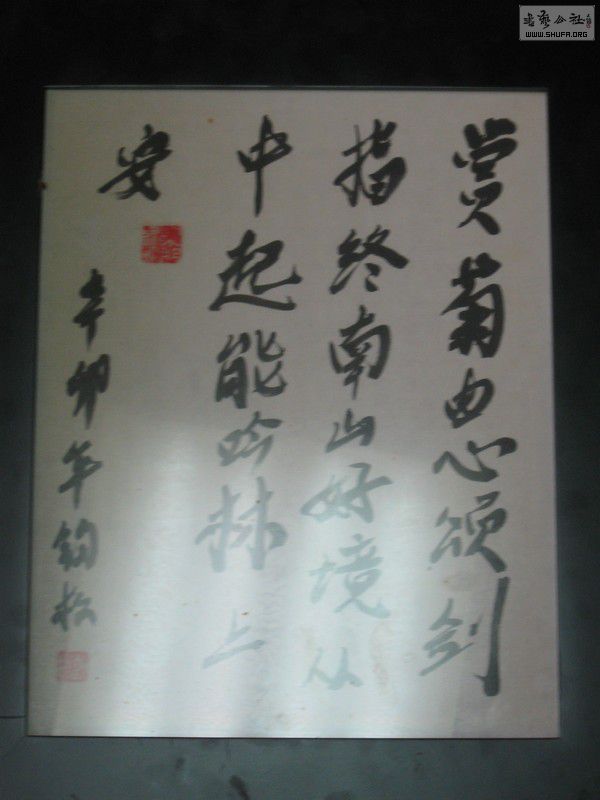 赏菊由心颂剑
指终南山好境从
中起能吟林上
安
辛卯年钧松
书艺公社
WWW.SHUFA.ORG